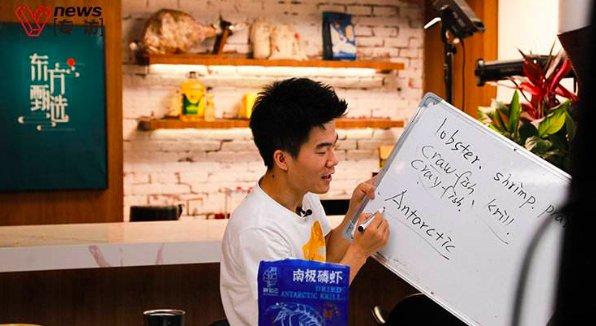 news
[专访]
东方
甄选
lobster、shrimp.
craw-fish、krill
cray-fish.
Antarctic
南极磷虾
DRIED
ANTARCTIC KRILL